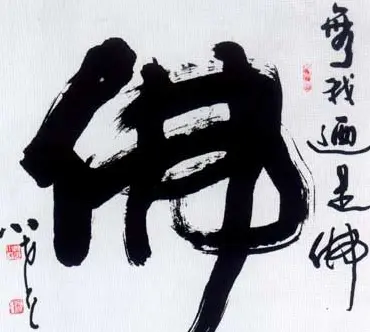 佛
無我迺是佛